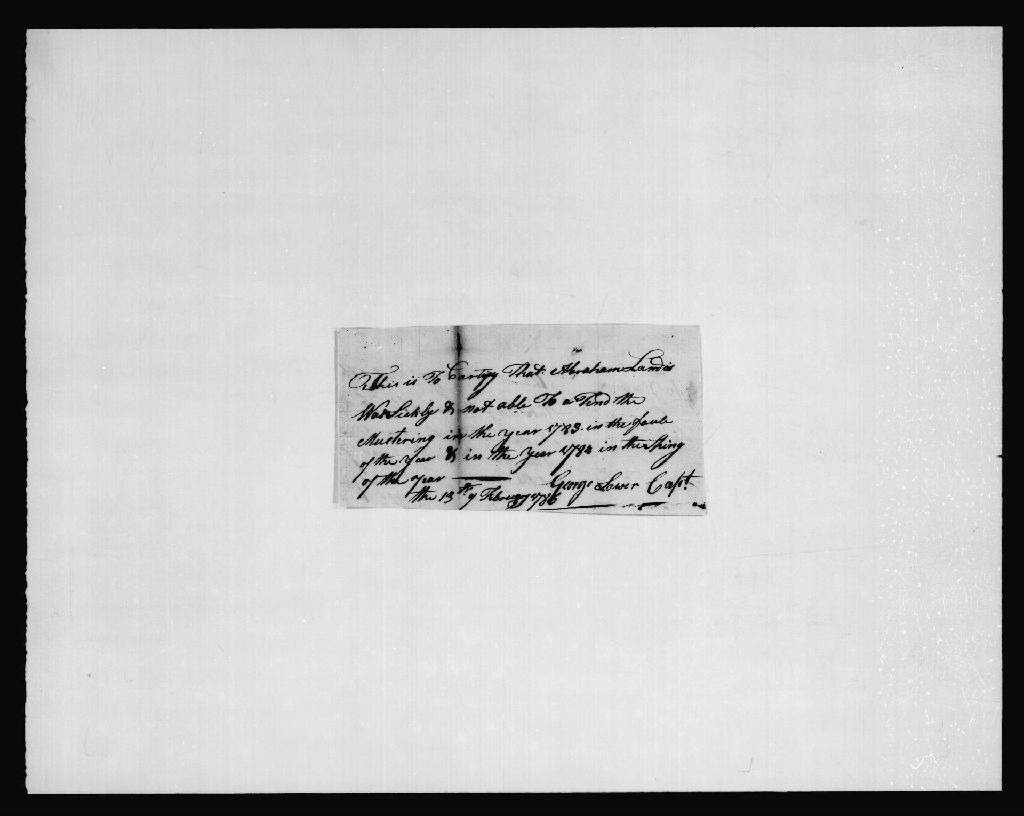 This is To Cartyy That Abraham Landis
Was Sickly & not able To a Tend the
Mustering in the year 1783 in the faule
of the year & in the year 1784 in the Spring
of the year George Lower Capt.
the 13th of Februy 1786